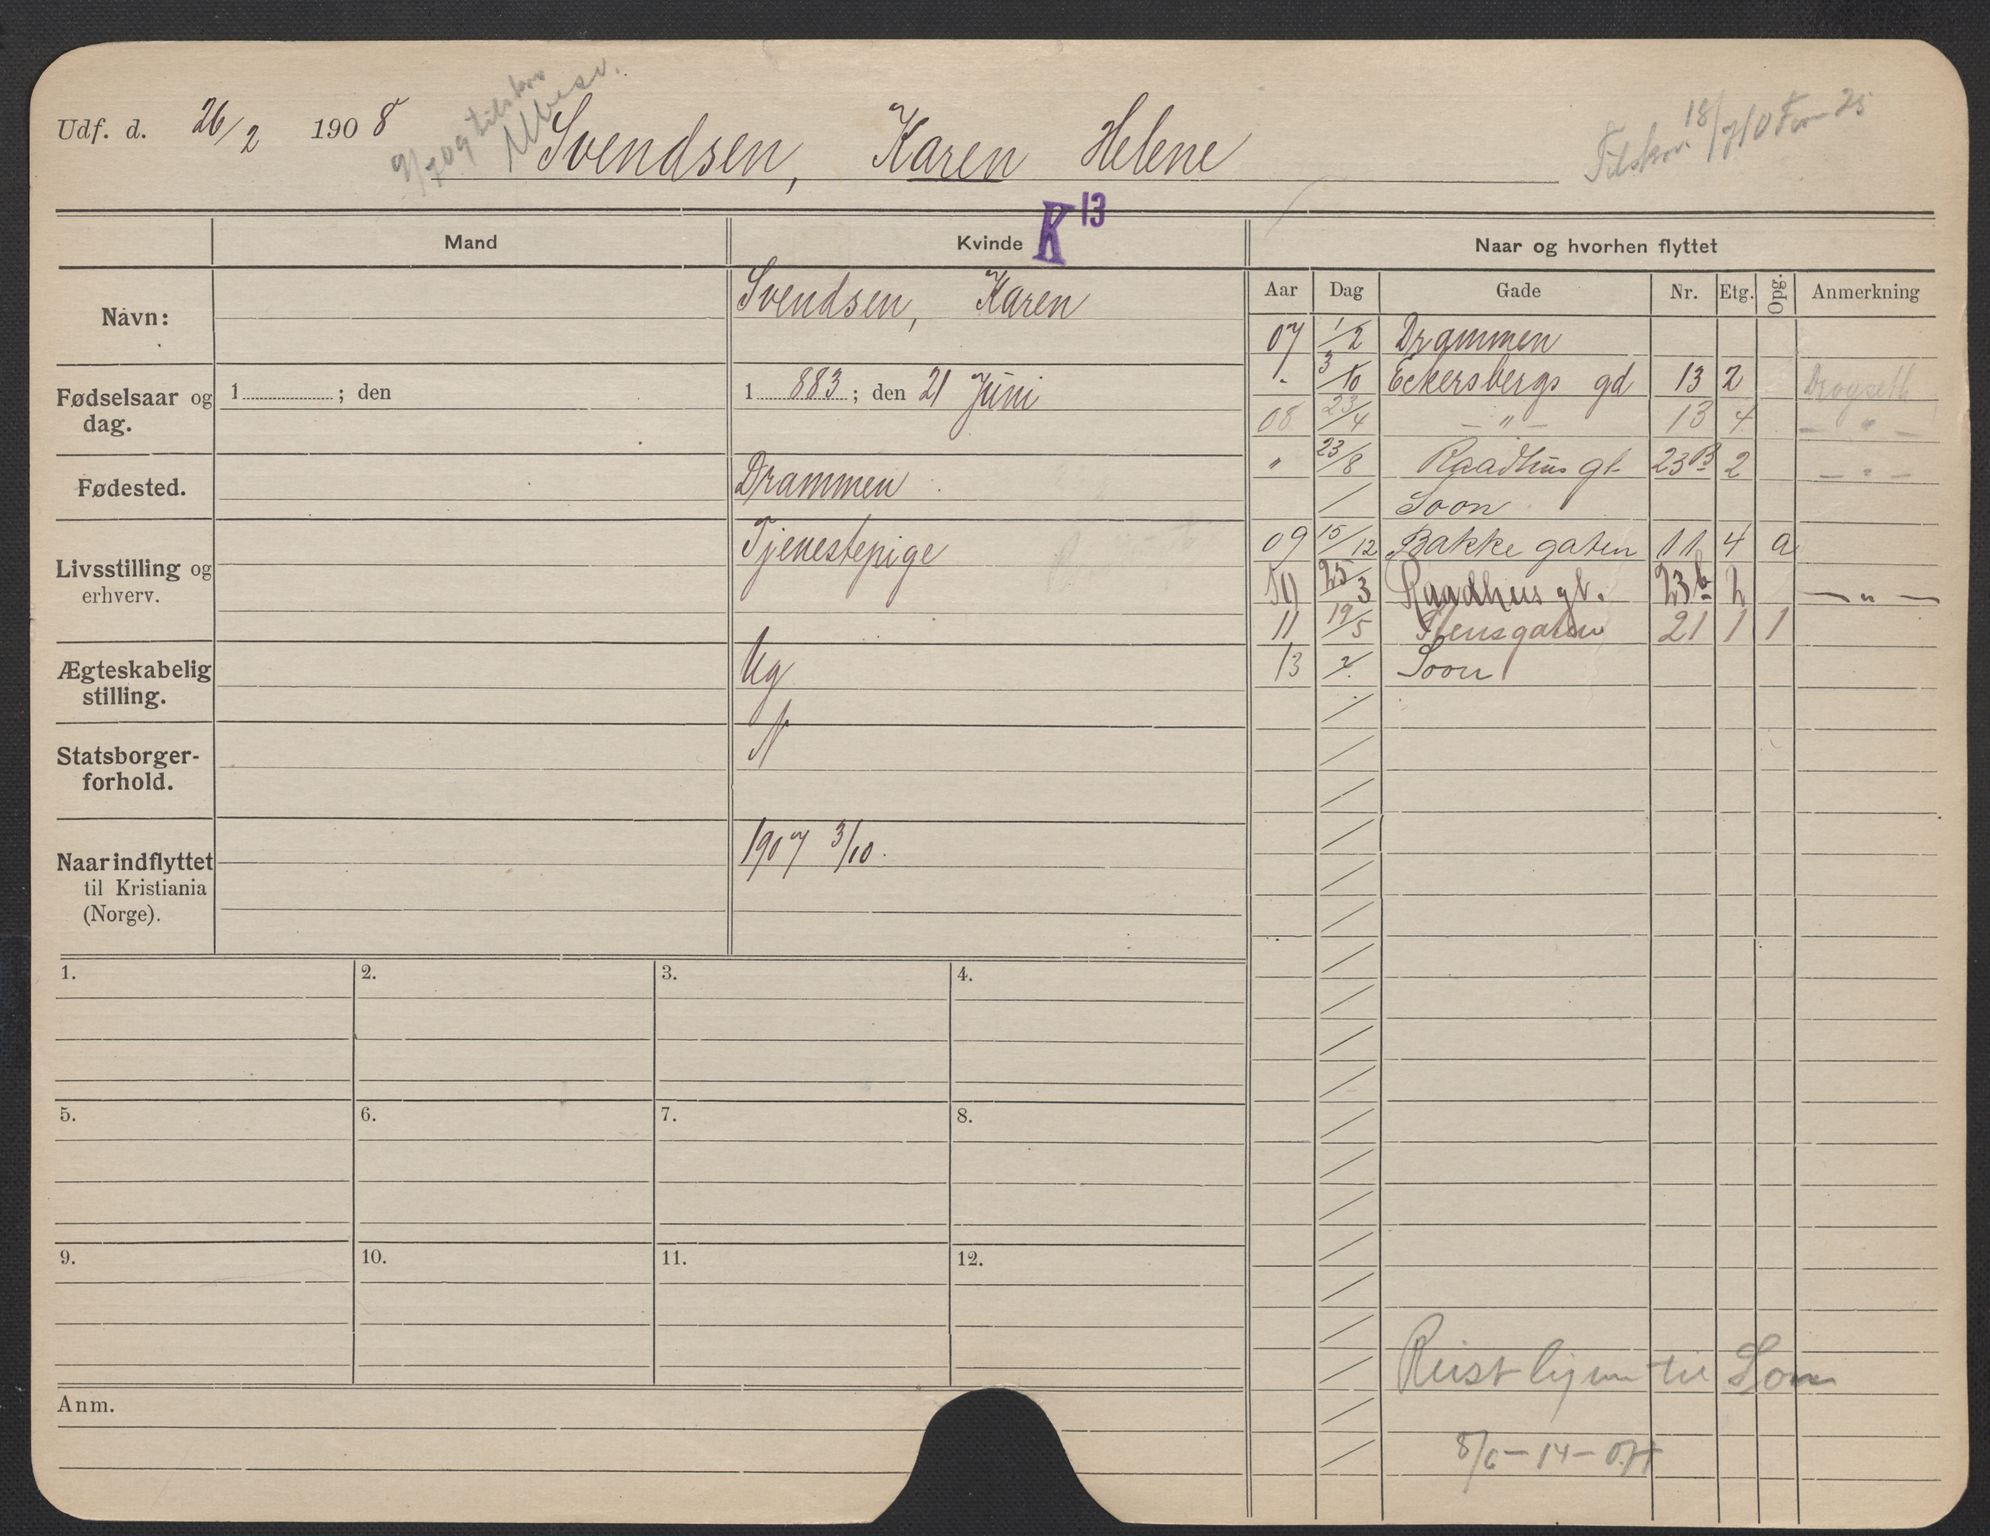 Udf. d. 26/2 1908 Svendsen, Karen Helene
9/7 09 tilskr. Ubesv.
Tilskr. 18/7 10 F 25
K 13
Mand Kvinde Naar og hvorhen flyttet
Aar Dag Gade Nr. Etg. Opg. Anmerkning
Navn: Svendsen, Karen
Fødselsaar og dag. 1 ; den 1 883 ; den 21 Juni
Fødested. Drammen
Livsstilling og erhverv. Tjenestepige
Ægteskabelig stilling. Ug
Statsborger-forhold. N
Naar indflyttet til Kristiania (Norge). 1907 3/10.
07 1/2 Drammen
"- 3/10 Eckersbergs gd 13 2 Drogseth
08 23/4 — " — 13 4 — " —
" 23/8 Raadhus gt 23B 2 — " —
/ Soon
09 15/12 Bakke gaten 11 4 a
10 25/3 Raadhus gt. 23b 2 — " —
11 19/5 Stensgaten 21 1 1
13 ? Soon
1. 2. 3. 4.
5. 6. 7. 8.
9. 10. 11. 12.
Reist hjem til Soon
8/6 — 14 —
Anm.